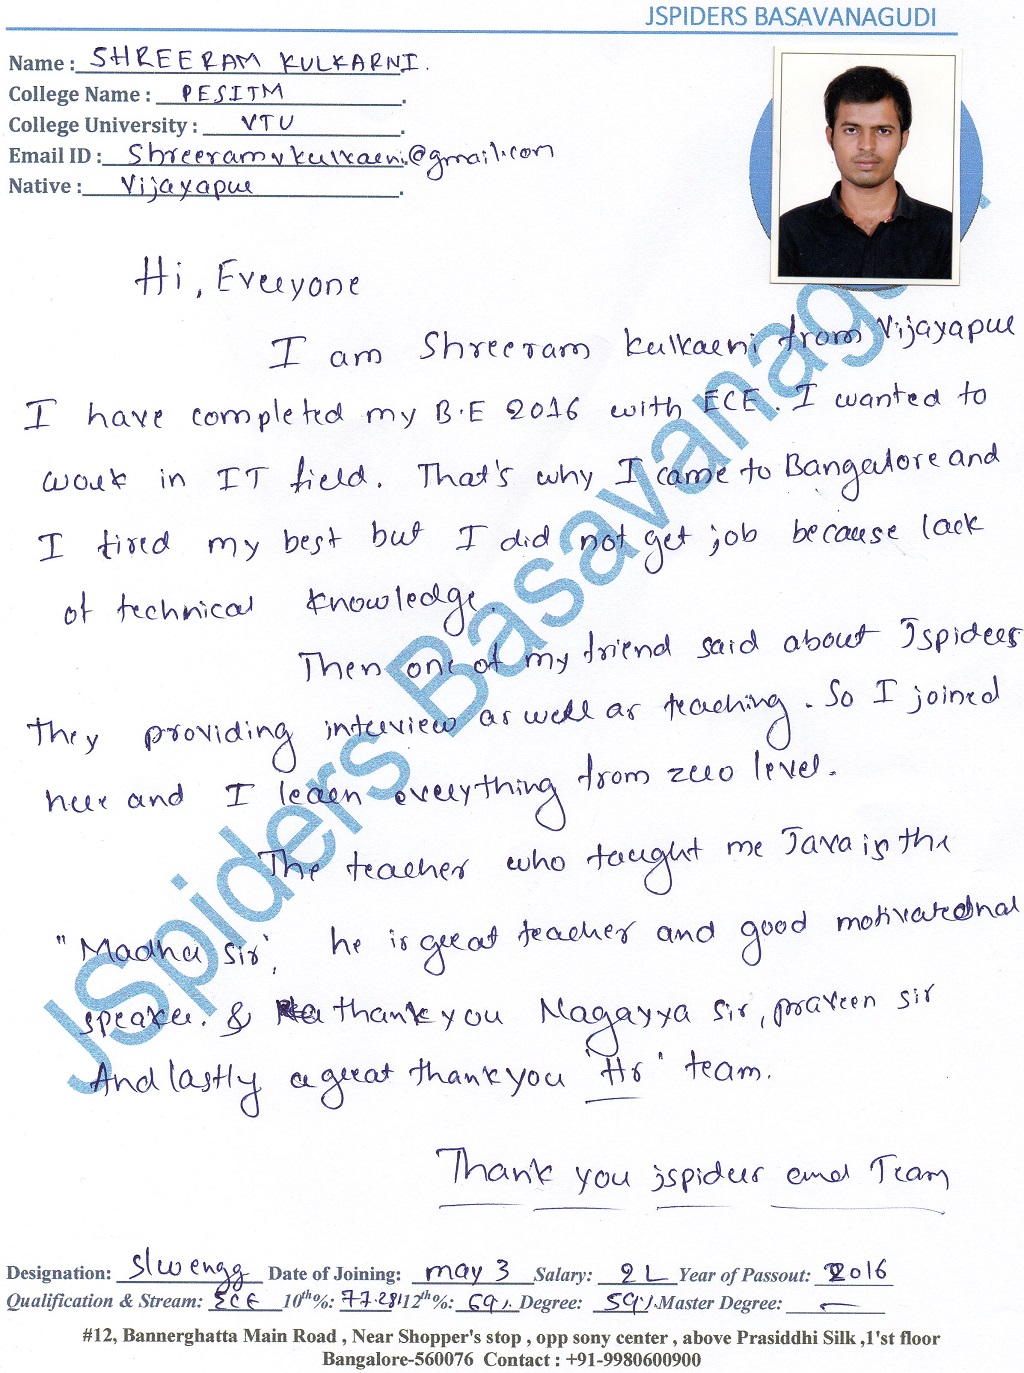 JSPIDERS BASAVANAGUDI
Name : SHREERAM KULKARNI.
College Name : PESITM.
College University : VTU.
Email ID : Shreeramvkulkarni@gmail.com
Native : Vijayapur.
Hi, Everyone
I am Shreeram Kulkarni from Vijayapur
I have completed my B.E 2016 with ECE. I wanted to
work in IT field. That's why I came to Bangalore and
I tired my best but I did not get job because lack
of technical knowledge.
Then one of my friend said about Jspiders
they providing interview as well as teaching. So I joined
here and I learn everything from zero level.
The teacher who taught me Java is the
"Madhu sir", he is great teacher and good motivational
speaker. & thank you Nagayya sir, praveen sir
And lastly a great thank you "Hr" team.
Thank you jspiders and Team
JSpiders Basavanagudi
Designation: s/w engg Date of Joining: may 3 Salary: 2 L Year of Passout: 2016
Qualification & Stream: ECE 10th%: 77.28% 12th%: 69% Degree: 59% Master Degree: —
#12, Bannerghatta Main Road , Near Shopper's stop , opp sony center , above Prasiddhi Silk ,1'st floor
Bangalore-560076 Contact : +91-9980600900